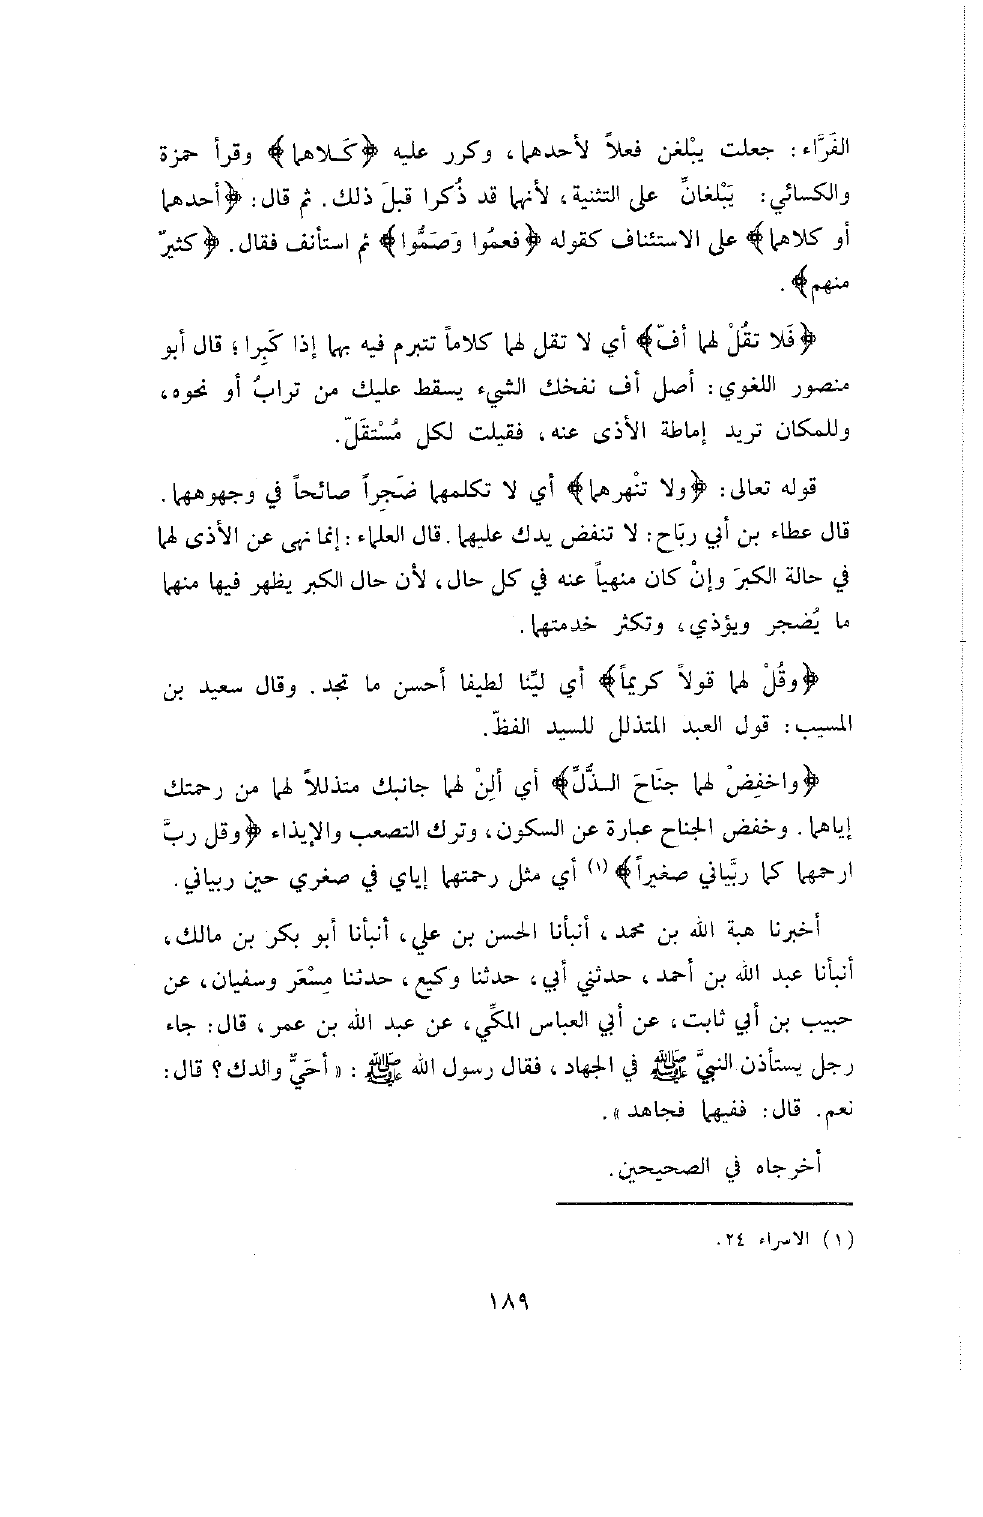 الفَرَّاء: جعلت يبْلغن فعلاً لأحدهما، وكرر عليه ﴿كَلاهما﴾ وقرأ حمزة
والكسائي: يَبْلغانِّ على التثنية، لأنهما قد ذُكرا قبلَ ذلك. ثم قال: ﴿أحدهما
أو كلاهما﴾ على الاستئناف كقوله ﴿فعمُوا وَصَمُّوا﴾ ثم استأنف فقال. ﴿كثيرٌ
منهم﴾.
﴿فَلا تقُلْ لهما أفّ﴾ أي لا تقل لهما كلاماً تتبرم فيه بهما إذا كَبِرا؛ قال أبو
منصور اللغوي: أصل أف نفخك الشيء يسقط عليك من ترابٌ أو نحوه،
وللمكان تريد إماطة الأذى عنه، فقيلت لكل مُسْتقَلّ.
قوله تعالى: ﴿ولا تنْهرهما﴾ أي لا تكلمهما ضَجِراً صائحاً في وجهوههما.
قال عطاء بن أبي ربَاح: لا تنفض يدك عليهما. قال العلماء: إنما نهى عن الأذى لهما
في حالة الكبَر وإنْ كان منهياً عنه في كل حال، لأن حال الكبر يظهر فيها منهما
ما يُضجر ويؤذي، وتكثر خدمتهما.
﴿وقُلْ لهما قولاً كريماً﴾ أي ليِّنا لطيفا أحسن ما تجد. وقال سعيد بن
المسيب: قول العبد المتذلل للسيد الفظّ.
﴿واخفِضْ لهما جنَاحَ الذُّلِّ﴾ أي ألِنْ لهما جانبك متذللاً لهما من رحمتك
إياهما. وخفض الجناح عبارة عن السكون، وترك التصعب والإيذاء ﴿وقل ربَّ
ارحمهما كما ربَّياني صغيراً﴾ (١) أي مثل رحمتهما إياي في صغري حين ربياني.
أخبرنا هبة الله بن محمد، أنبأنا الحسن بن علي، أنبأنا أبو بكر بن مالك،
أنبأنا عبد الله بن أحمد، حدثني أبي، حدثنا وكيع، حدثنا مِسْعَر وسفيان، عن
حبيب بن أبي ثابت، عن أبي العباس المكِّي، عن عبد الله بن عمر، قال: جاء
رجل يستأذن النبيَّ ﷺ في الجهاد، فقال رسول الله ﷺ: «أحَيٌّ والدك؟ قال:
نعم. قال: ففيهما فجاهد».
أخرجاه في الصحيحين.
(١) الاسراء ٢٤.
١٨٩